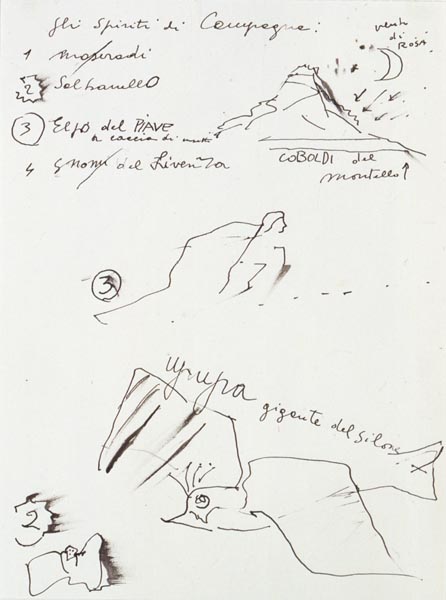 Gli Spiriti di Campagna:
1 Mazaroi
2 Salbanello
3 Elfo del PIAVE
a caccia di
4 Gnomi del Livenza
vento
di
ROSA
COBOLDI del
Montello
3
upupa
gigente del
2